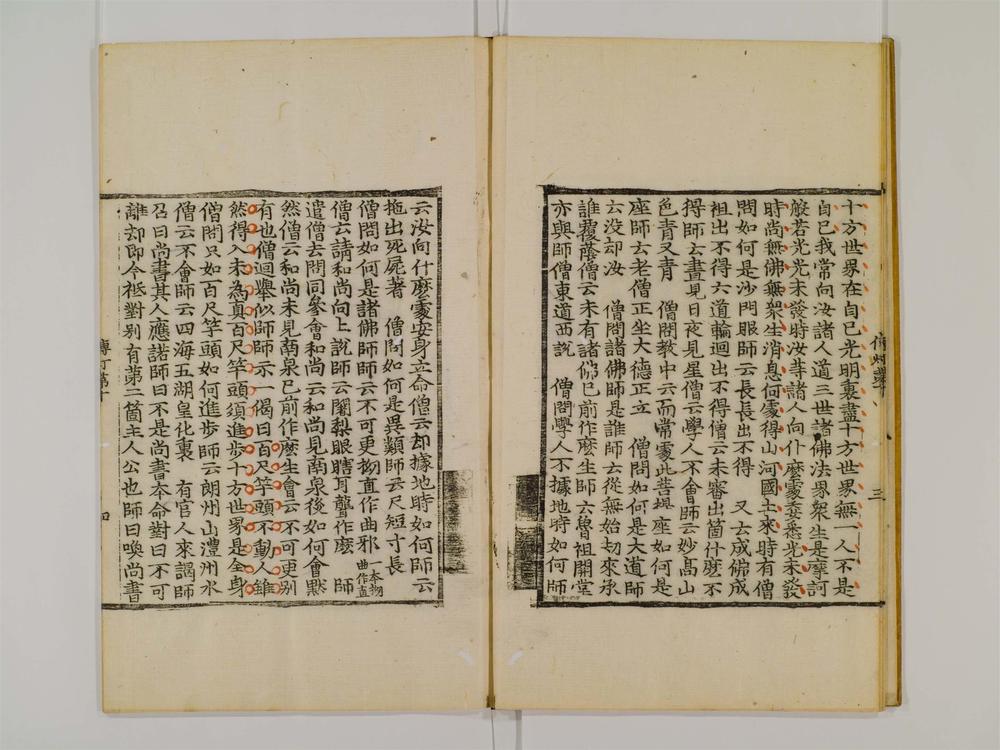 十方世界在自己光明裏盡十方世界無一人不是
自己我常向汝諸人道三世諸佛法界衆生是摩訶
般若光光未發時汝等諸人向什麽處委悉光未發
時尚無佛無衆生消息何處得山河國土來時有僧
問如何是沙門眼師云長長出不得　又云成佛成
祖出不得六道輪迴出不得僧云未審出箇什麽不
得師云晝見日夜見星僧云學人不會師云妙髙山
色青又青　僧問教中云而常處此菩提座如何是
座師云老僧正坐大德正立　僧問如何是大道師
云没却汝　僧問諸佛師是誰師云從無始劫來承
誰覆䕃僧云未有諸佛已前作麽生師云魯祖開堂
亦與師僧東道西說　僧問學人不據地時如何師
三
云汝向什麽處安身立命僧云却據地時如何師云
拖出死屍著　僧問如何是異類師云尺短寸長
僧問如何是諸佛師師云不可更拗直作曲邪本拗曲作直
僧云請和尚向上說師云闍梨眼瞎耳聾作麽　師
遣僧去問同參會和尚云和尚見南泉後如何會黙
然僧云和尚未見南泉已前作麽生會云不可更别
有也僧迴舉似師師示一偈曰百尺竿頭不動人雖
然得入未為真百尺竿頭須進步十方世界是全身
僧問只如百尺竿頭如何進步師云朗州山澧州水
僧云不會師云四海五湖皇化裏　有官人來謁師
召曰尚書其人應諾師曰不是尚書本命對曰不可
離却即今祗對别有第二箇主人公也師曰喚尚書
傳灯第十
四